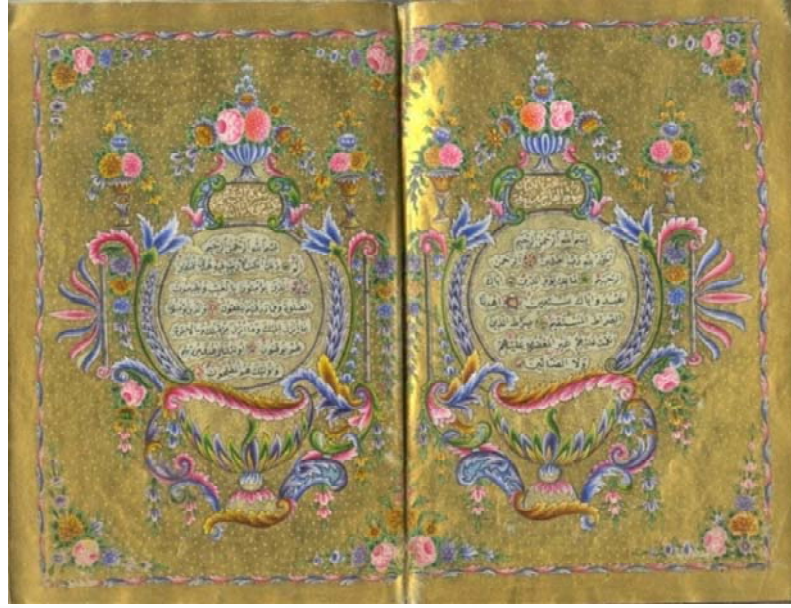 بسم الله الرحمن الرحيم
الحمد لله رب العالمين الرحمن
الرحيم مالك يوم الدين اياك
نعبد واياك نستعين اهدنا
الصراط المستقيم صراط الذين
انعمت عليهم غير المغضوب عليهم
ولا الضالين
بسم الله الرحمن الرحيم
الم ذلك الكتاب لا ريب فيه هدى للمتقين
الذين يؤمنون بالغيب ويقيمون
الصلوة ومما رزقناهم ينفقون والذين يؤمنون
بما انزل اليك وما انزل من قبلك وبالاخرة
هم يوقنون اولئك على هدى من ربهم
واولئك هم المفلحون